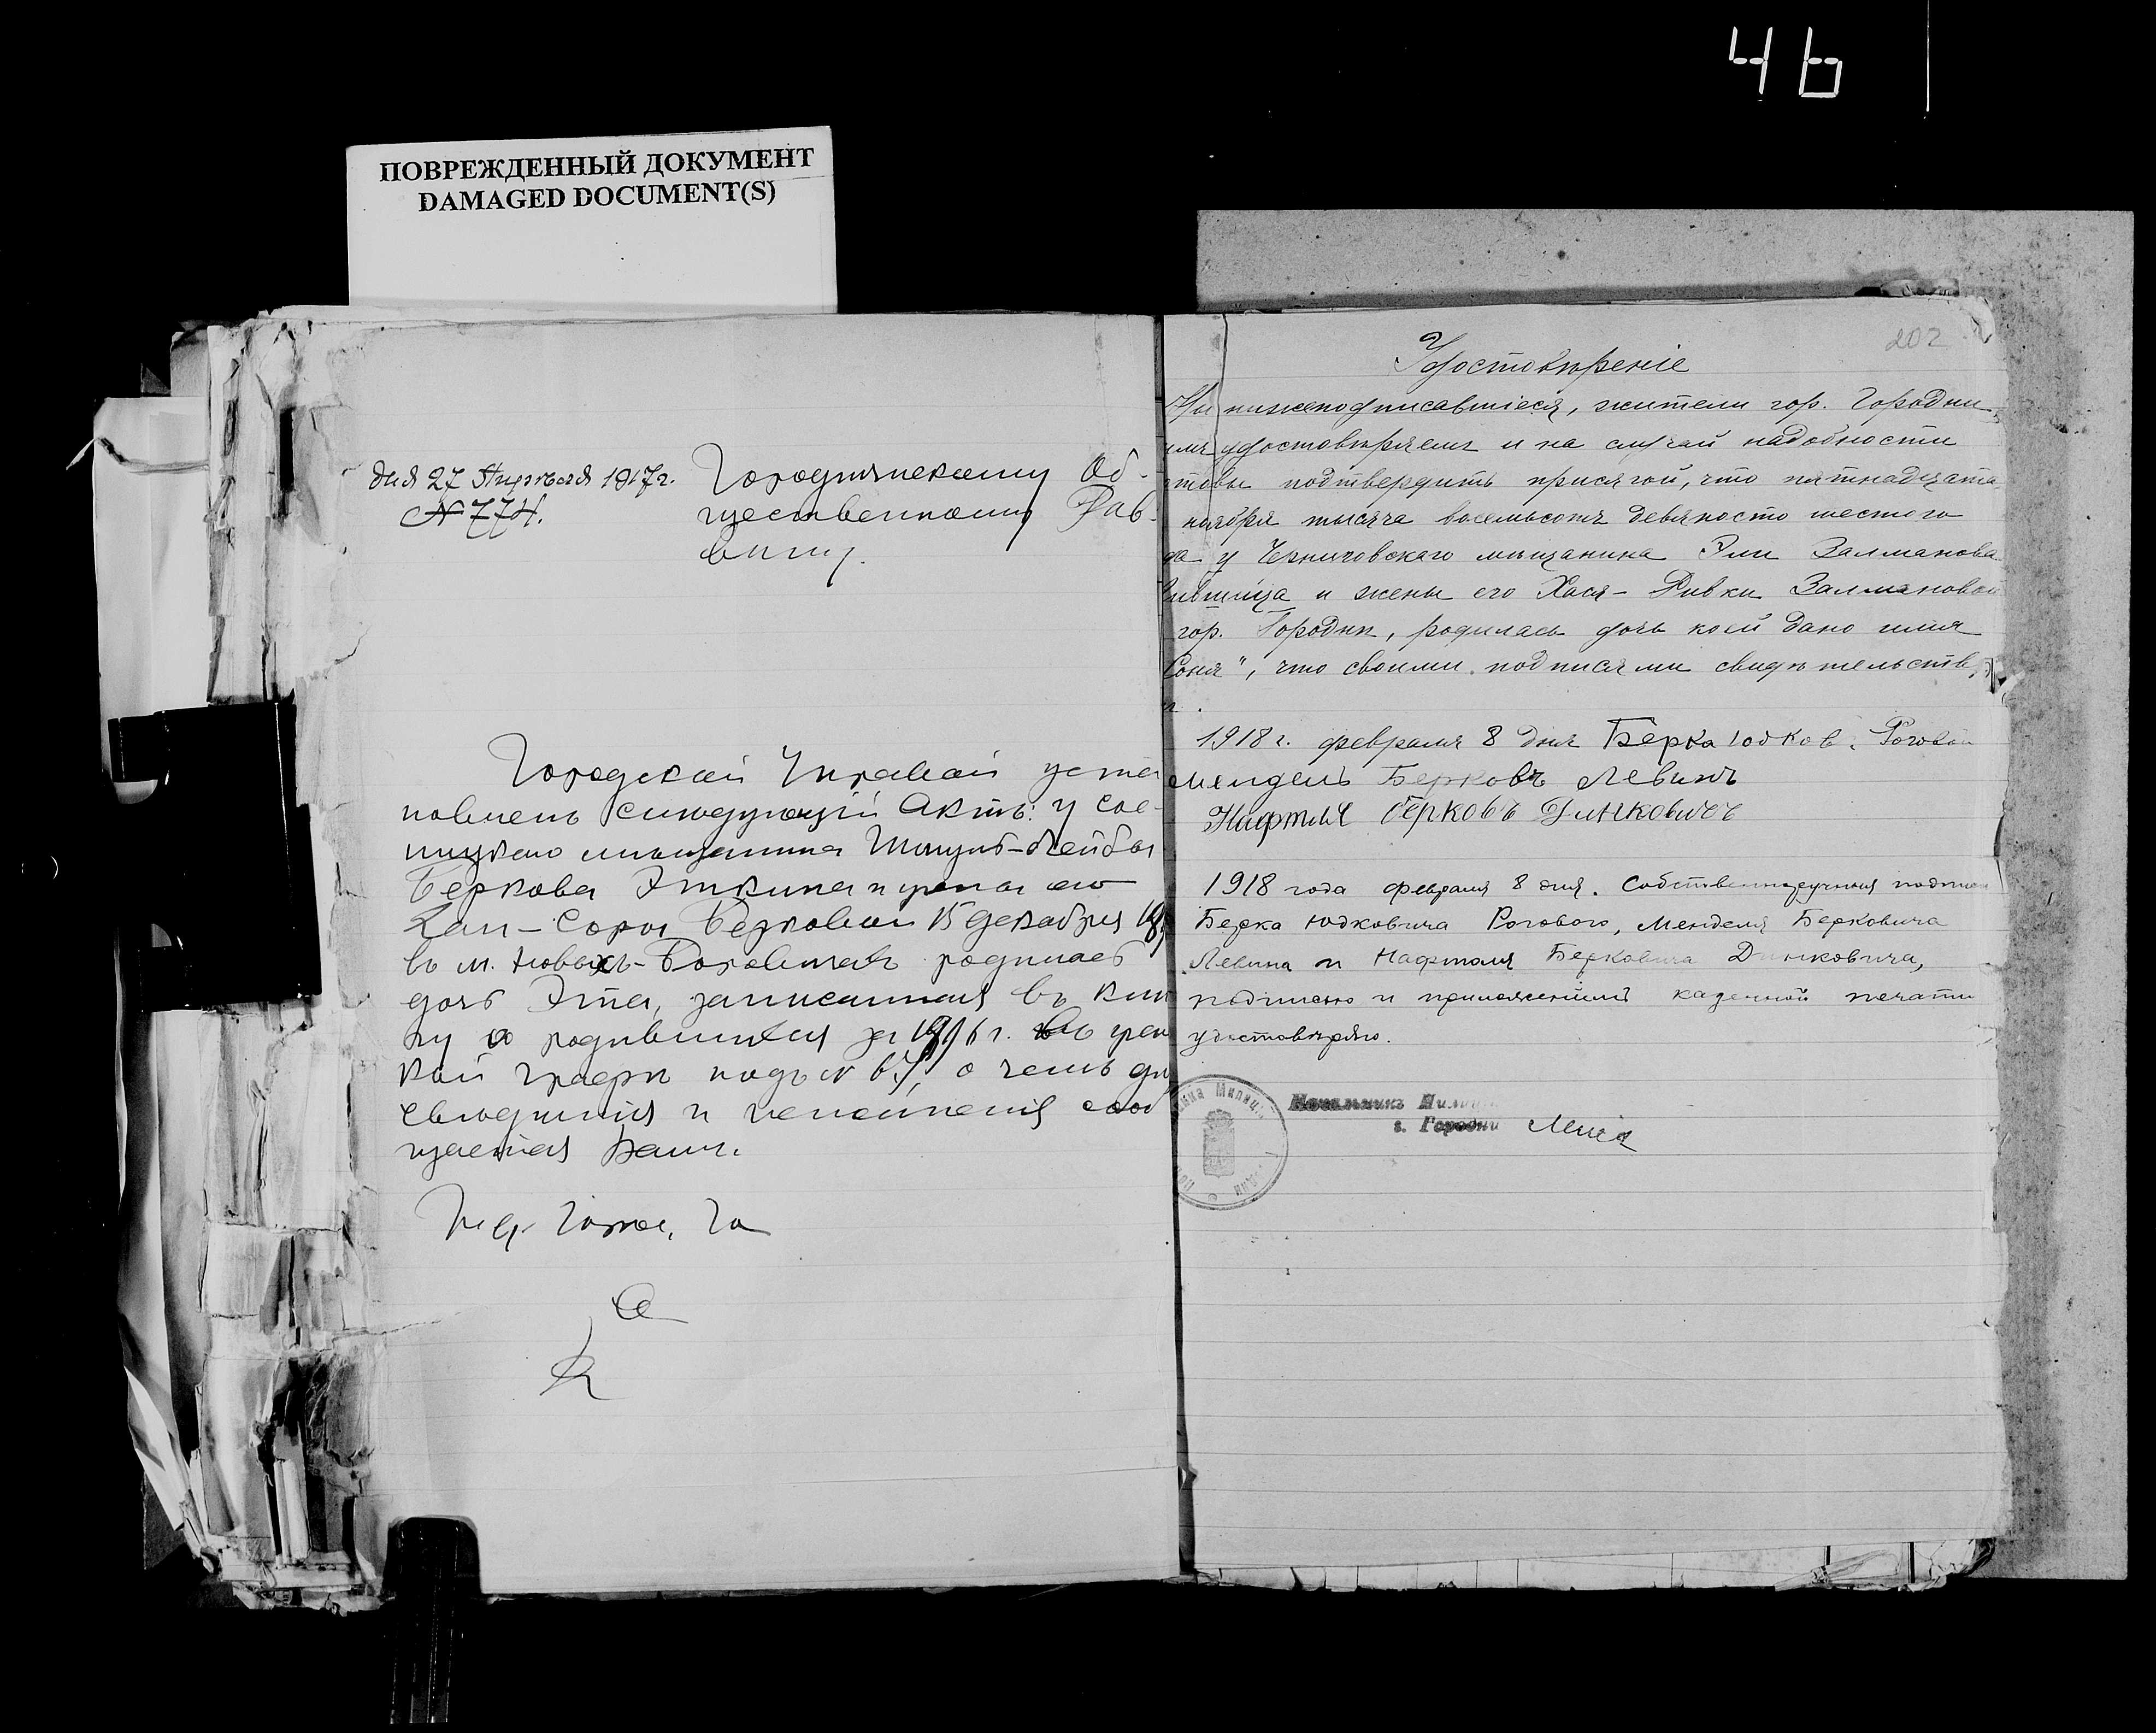 46
ПОВРЕЖДЕННЫЙ ДОКУМЕНТ
DAMAGED DOCUMENT(S)
дня 27 Апрѣля 1917г.
№ 774.
Городнянскому Об-
щественному Рав-
вину.
Городской Управой уста
новленъ слѣдующій актъ: у Сос-
мѣщанина Шмуль-Лейбы
Беркова Эткина и жены его
Хаи-Соры Берковой 15 декабря 18
въ м. Новыхъ-Боровичахъ родилась
дочь Этта, записанная въ кни
гу о родившихся за 1916 г. въ жен
ской графѣ подъ № 67, о чемъ для
свѣдѣнія и исполненія сооб
щается Вамъ.
202
Удостовѣреніе
Мы нижеподписавшіеся, жители гор. Городни,
симъ удостовѣряемъ и на случай надобности
готовы подтвердить присягой, что пятнадцата
ноября тысяча восемьсотъ девяносто шестого
да у Черниговскаго мѣщанина Эли Залманова
и жены его Хася-Ривки Залмановой
гор. Городни, родилась дочь коей дано имя
Соня", что своими подписями свидѣтельств
1918 г. февраля 8 дня Берка Юдков. Роговой
Мендель Берковъ Левинъ
Нафтоль Берковъ Динковичъ
1918 года февраля 8 дня. Собственноручныя подпи
Берка Юдковича Рогового, Менделя Берковича
Левина и Нафтоля Берковича Динковича,
подписью и приложеніемъ казенной печати
удостовѣряю.
Начальникъ Милиц
г. Городни